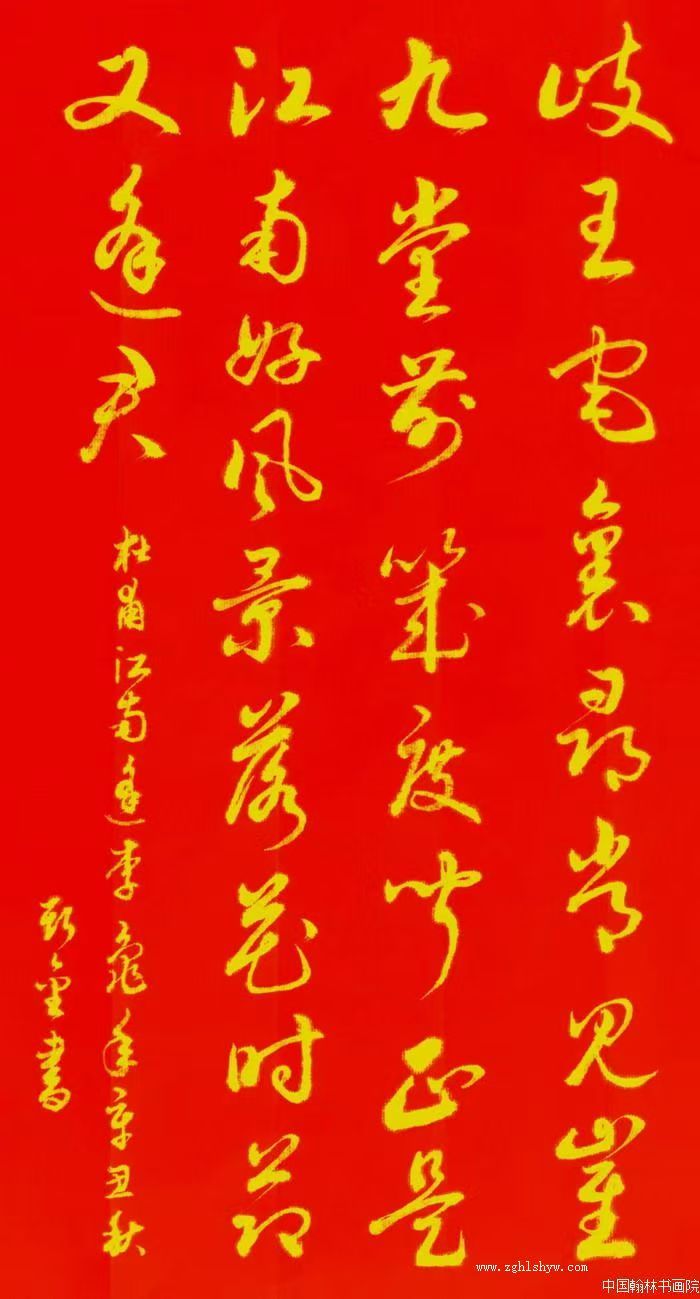 岐王宅裏尋常見崔
九堂前幾度聞正是
江南好风景落花时節
又逢君
杜甫江南逢李龜年辛丑秋
金書
www.zghlshyw.com
中国翰林书画院